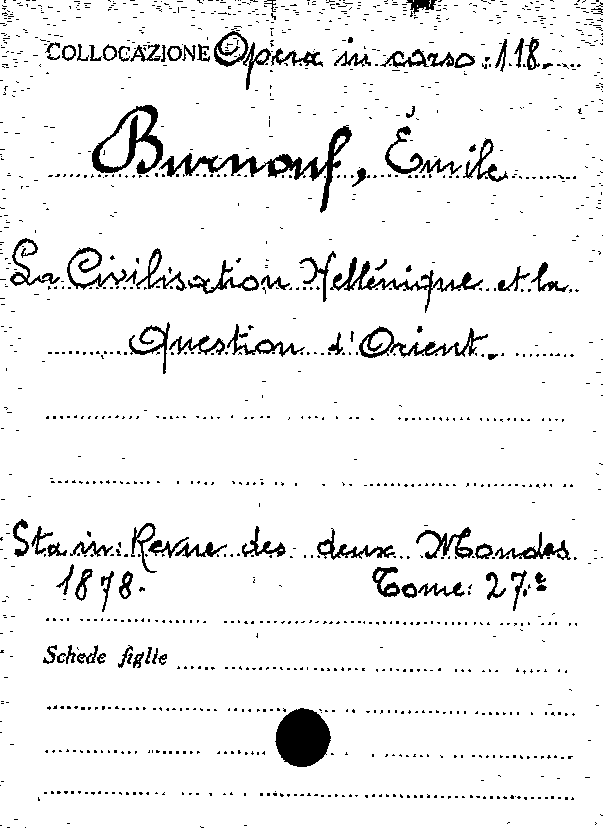 COLLOCAZIONE Opera in corso: 118.
Burnouf, Émile
La Civilisation Hellénique et la
Question d'Orient.
Sta in: Revue des deux Mondes
1878. Tome: 27.e
Schede figlie